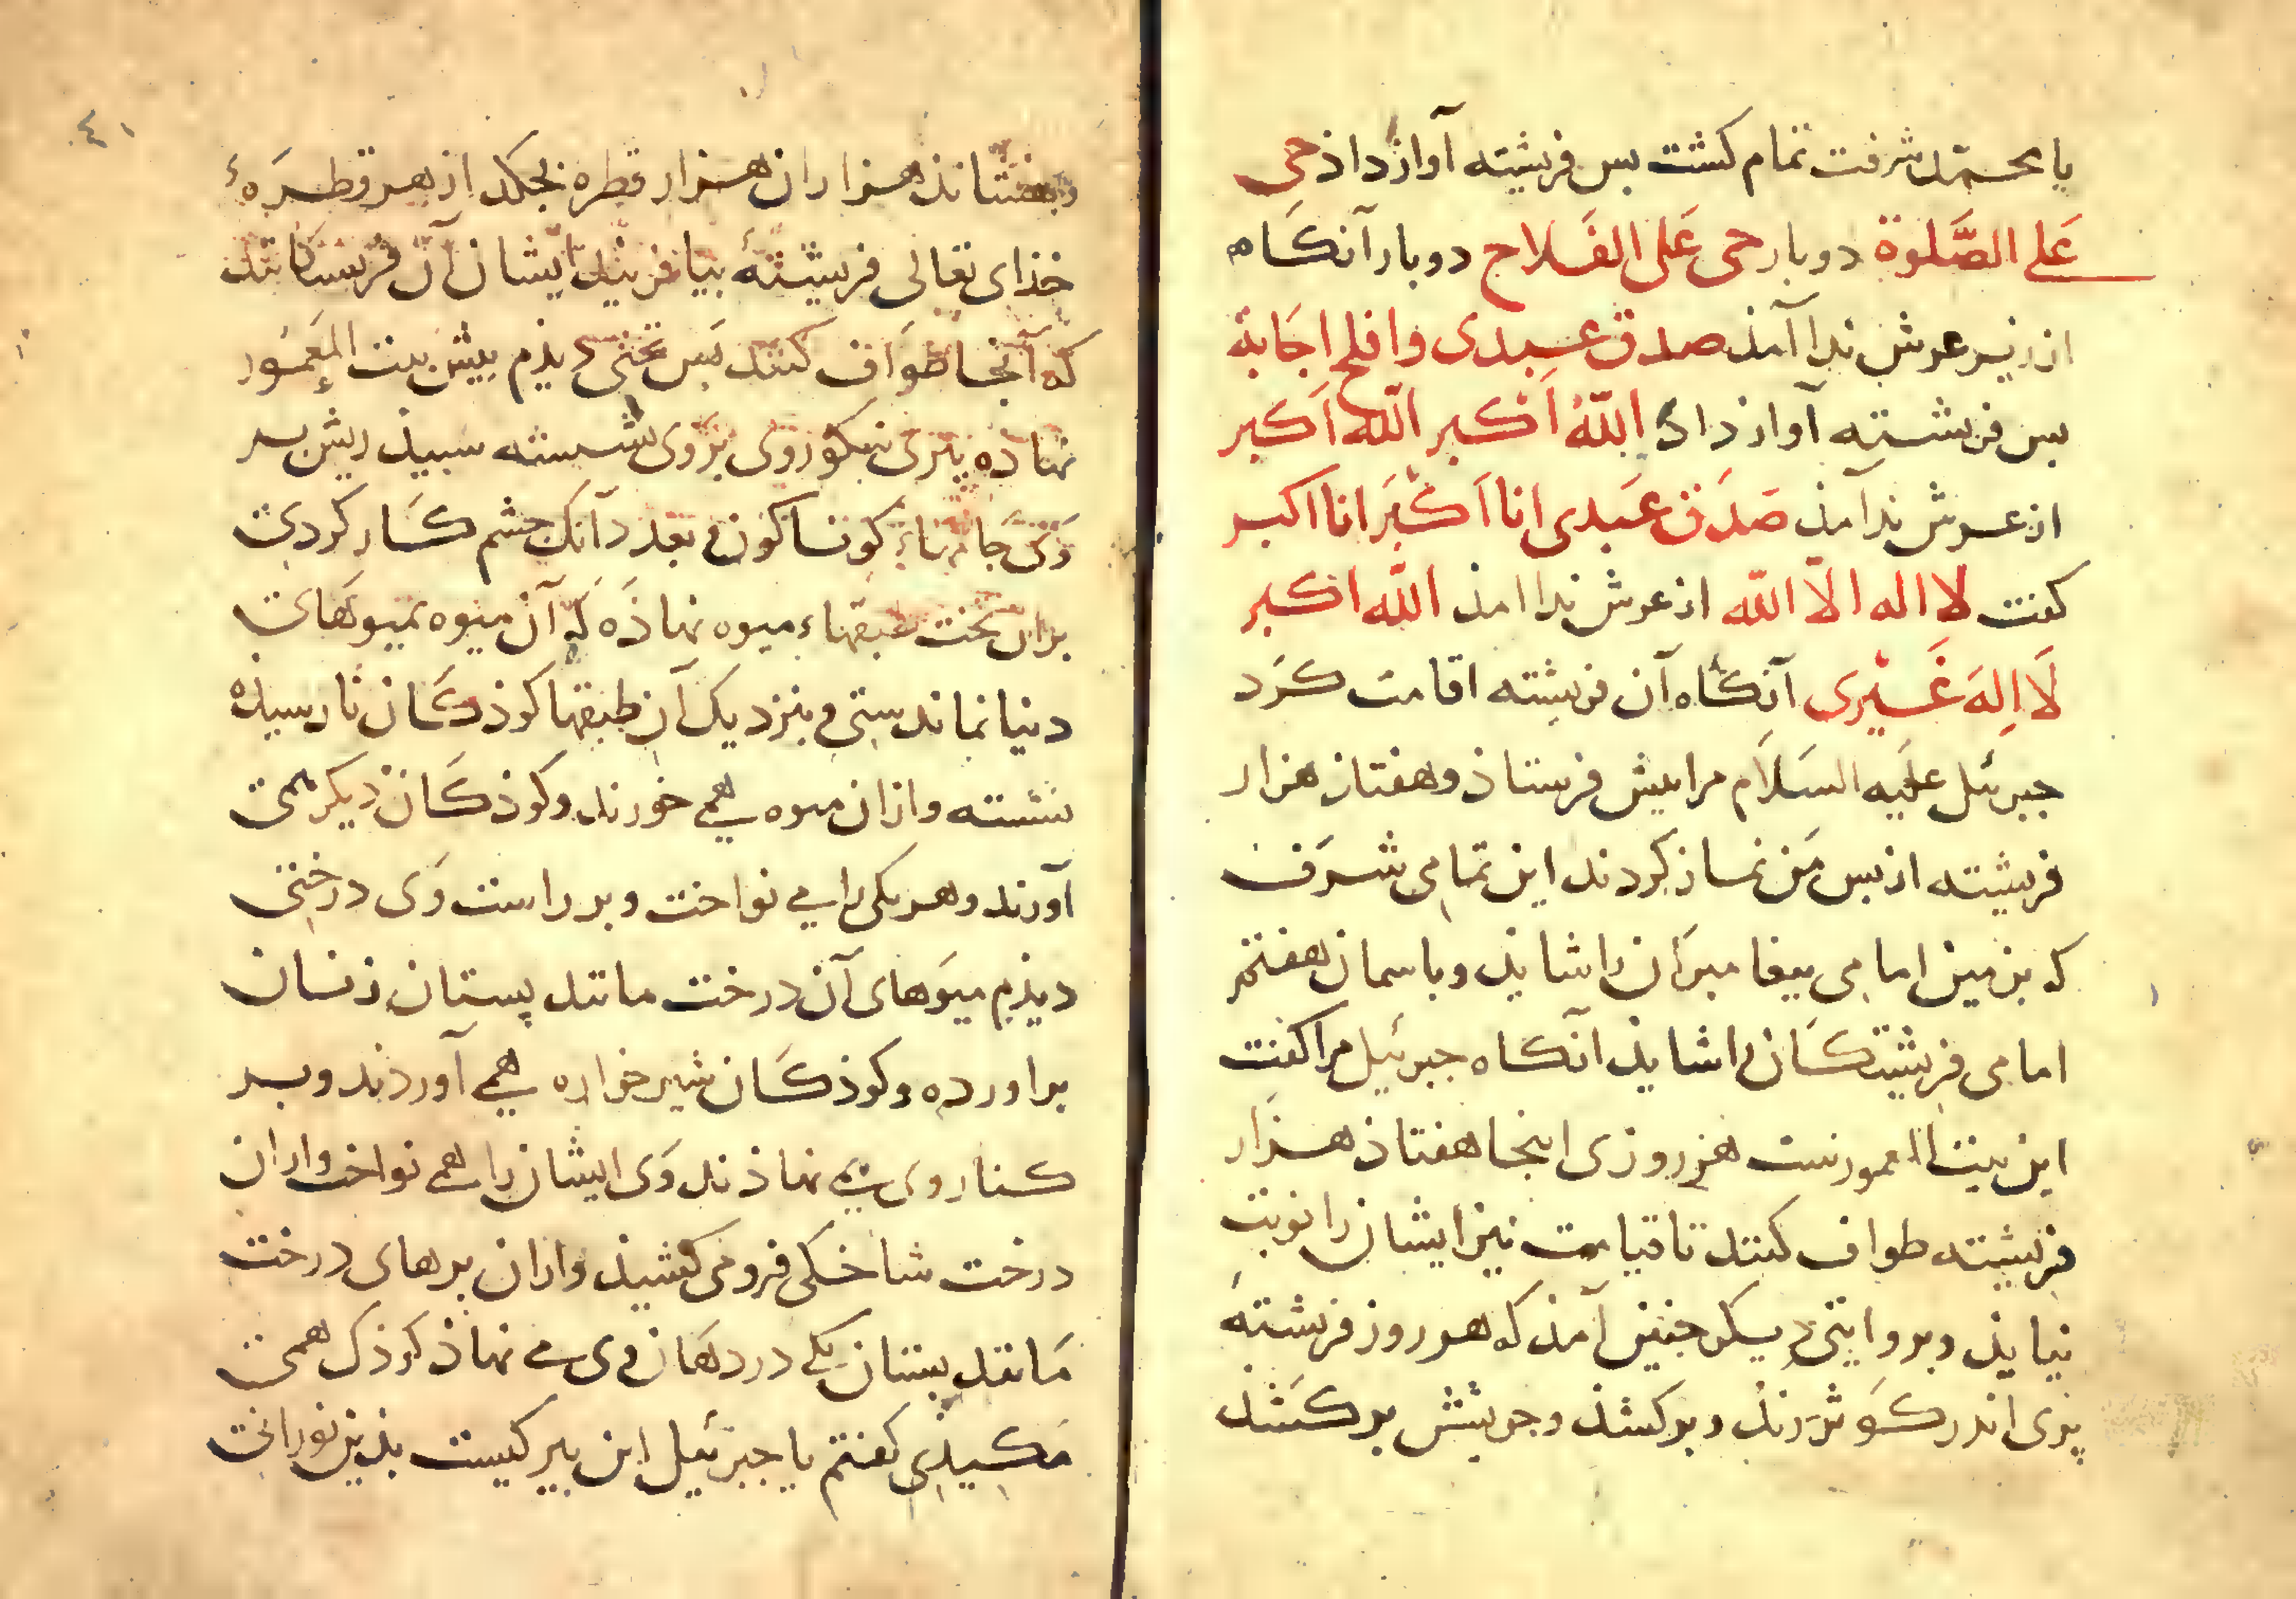 یا محمّد شرفت تمام کشت بس فریشته آواز داذ حی
عَلی الصَّلوة دوبار حی عَلی الفَلاح دوبار آنکَاه
از زیر عرش ندا آمذ صدق عبدی وافلح اجَابة
بس فرشته آواز داذ اللّهُ اَکبر اللّه اَکبر
از عرش ندا آمذ صَدَق عَبدی انا اَکْبَر انا اکبر
کفت لا اله الّا اللّه از عرش ندا امذ اللّه اکبر
لَا اِلهَ غَیْری آنکاه آن فریشته اقامت کرَد
جبرئیل علَیه السَلاَم مرا بیش فرستاذ و هفتاذ هزار
فریشته از بس مَن نماز کردند این تمامی شرَف
که بزمین امامی بیغامبرَان را شایذ و باسمان هفتم
امامی فریشتکَان را شایذ آنکاه جبرئیل مرا کفت
این بیت المعمورست هر روزی اینجا هفتاذ هزَار
فریشته طواف کنند تا قیامت نیز ایشان را نوبت
نیایذ و بروایتی دیکر جنین آمذ که هر روز فرشتهٔ
بری اندر کَوثر زند و برکشذ و جو بیش برکشذ
و بفشاند هزاران هزار قطره بجکد از هر قطرَهٔ
خذای تعالی فریشتهٔ بیافریند ایشان آن فرشتکانند
که آنجا طوَاف کنند بَس تختی دیذم بیش بیت المَعمُور
نهاذه بیری نیکوروی بروی نشسته سبیذ ریش بسر
وَی جَامهاءِ کوناکون و بعدد آنک جشم کار کردی
بران تخت طبقهاءِ میوه نهاذَه که آن میوه بمیوَهای
دنیا نماند ستی و بنزدیک آن طبقها کوذکَان نارسیذه
نشسته و ازان میوه همی خورند و کوذکَان دیکر همی
آورند و هر یکی را می نواخت و بر راست وَی درختی
دیذم میوَهای آن درخت مانند پستان زنان
براورده و کوذکَان شیرخواره همی آوردند و بر
کنار وی می نهاذند وَی ایشان را همی نواخت و ازان
درخت شاخکی فرو می کشیذ و ازان برهای درخت
مَانند بستان یکی در دهَان وی می نهاذ کوذک همی
مَکیذی کفتم یا جبرئیل این بیر کیست بذین نورانی